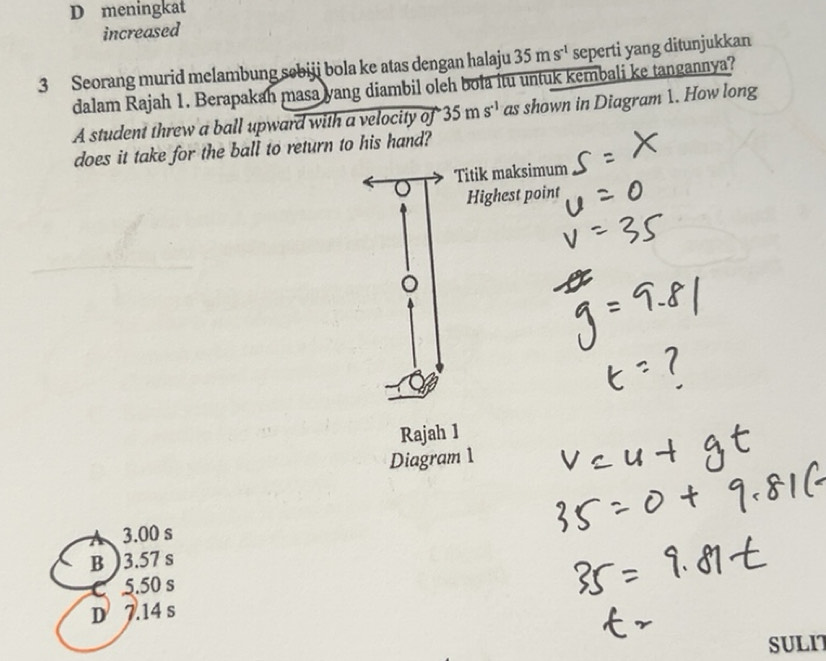 D meningkat
increased
3 Seorang murid melambung sebiji bola ke atas dengan halaju 35 m s⁻¹ seperti yang ditunjukkan
dalam Rajah 1. Berapakah masa yang diambil oleh bola itu untuk kembali ke tangannya?
A student threw a ball upward with a velocity of 35 m s⁻¹ as shown in Diagram 1. How long
does it take for the ball to return to his hand?
Titik maksimum
Highest point
S = X
u = 0
v = 35
g = 9.81
t = ?
Rajah 1
Diagram 1
v = u + gt
35 = 0 + 9.81(
35 = 9.81t
t =
A 3.00 s
B 3.57 s
C 5.50 s
D 7.14 s
SULIT